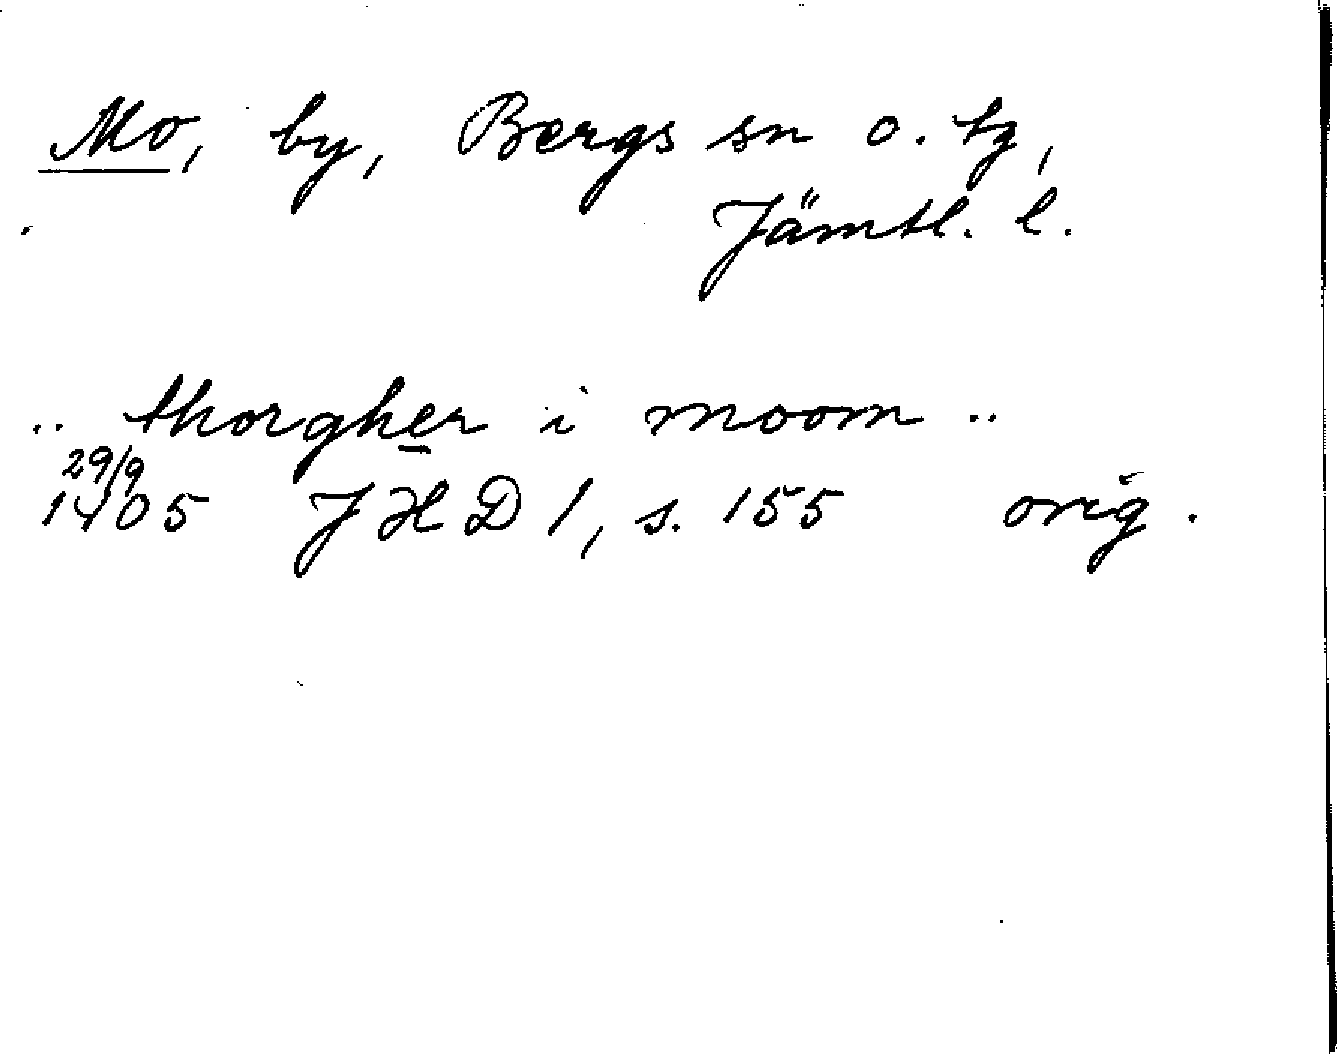 Mo, by, Bergs sn o. tg,
Jämtl. l.
.. thorgher i moom ..
29/9
1405 JHD 1, s. 155 orig.